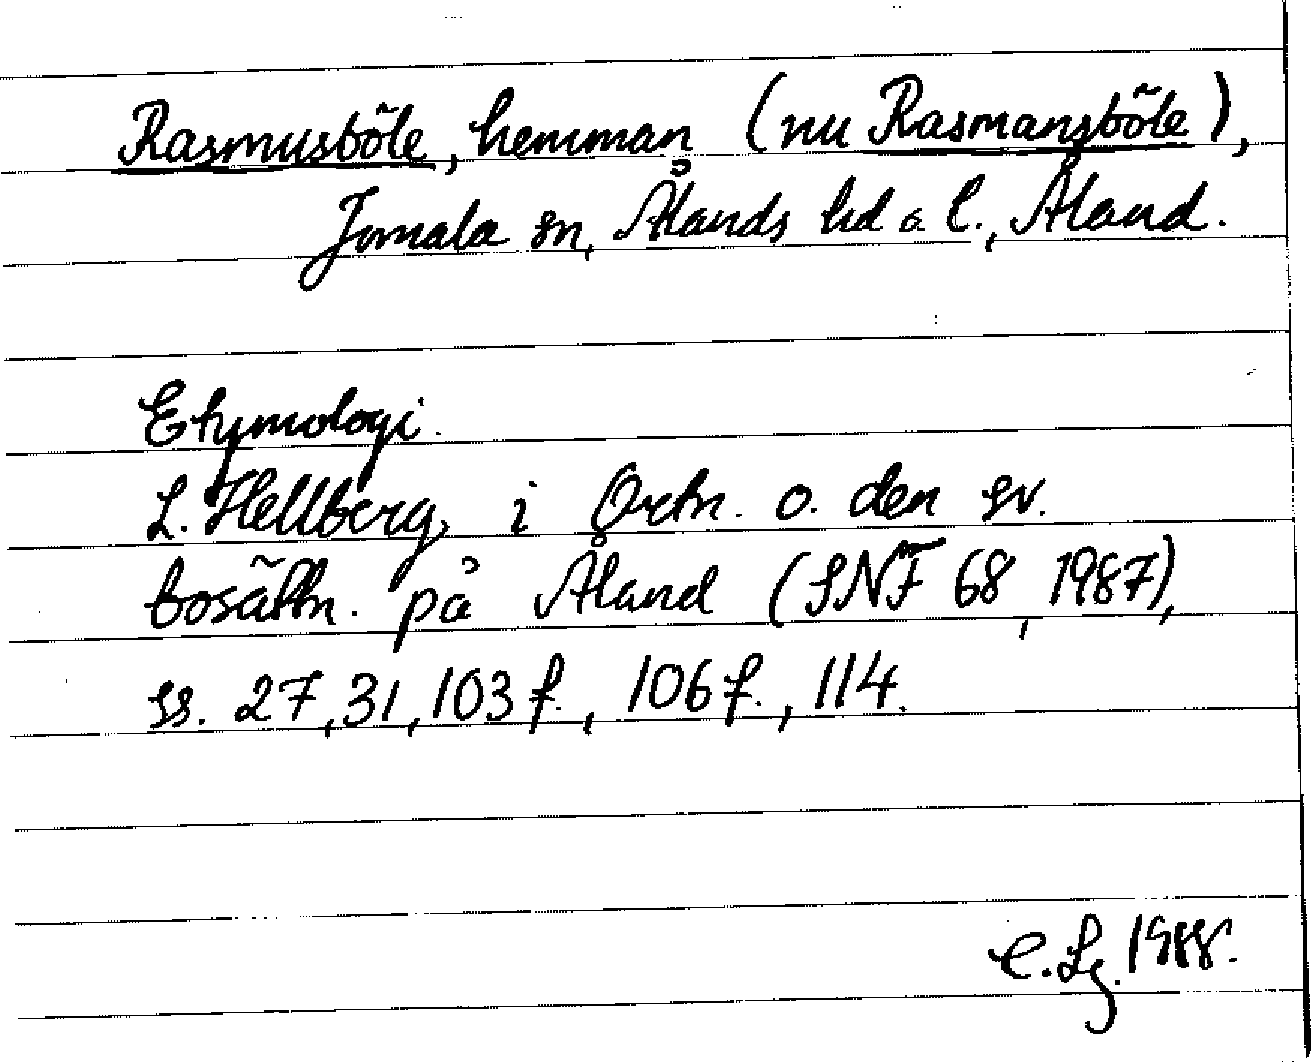 Rasmusböle, hemman (nu Rasmansböle),
Jomala sn, Ålands hd o. l., Åland.
Etymologi.
L. Hellberg, i Ortn. o. den sv.
bosättn. på Åland (SNF 68, 1987),
ss. 27, 31, 103 f., 106 f., 114.
C. Lg. 1988.